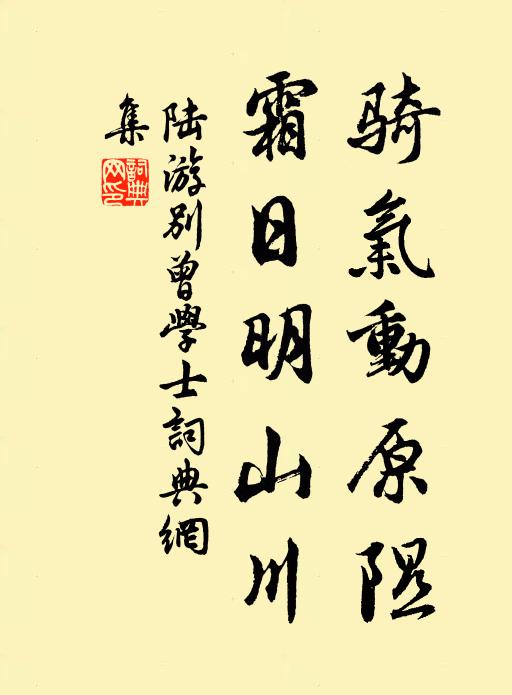 骑氣動原隰
霜日明山川
陆游别曾學士詞典網
集
詞典網印